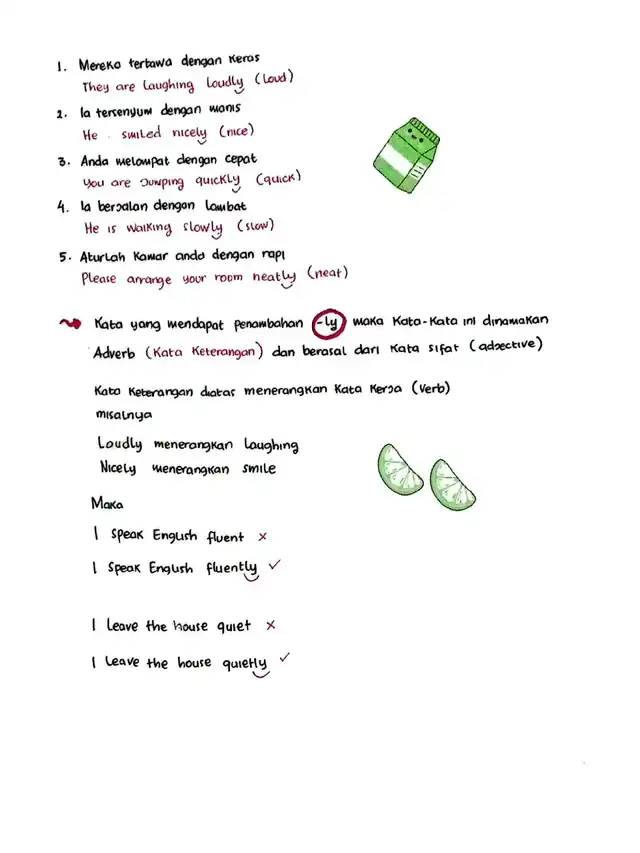 1. Mereka tertawa dengan keras
They are laughing loudly (loud)
2. Ia tersenyum dengan manis
He . smiled nicely (nice)
3. Anda melompat dengan cepat
You are jumping quickly (quick)
4. Ia berjalan dengan lambat
He is walking slowly (slow)
5. Aturlah kamar anda dengan rapi
Please arrange your room neatly (neat)
Kata yang mendapat penambahan -ly maka kata-kata ini dinamakan
Adverb (kata keterangan) dan berasal dari kata sifat (adjective)
Kata keterangan diatas menerangkan kata kerja (verb)
misalnya
Loudly menerangkan laughing
Nicely menerangkan smile
Maka
I speak English fluent ×
I speak English fluently ✓
I leave the house quiet ×
I leave the house quietly ✓